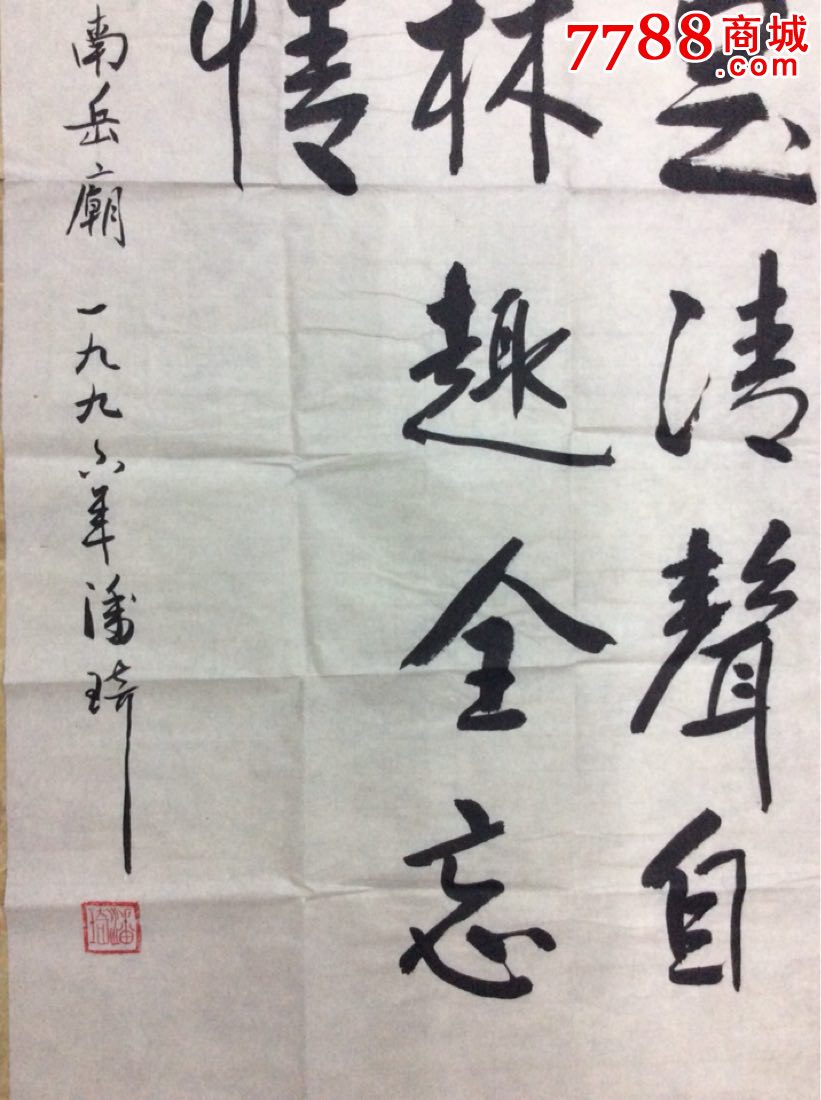 7788商城
.com
清聲自
林趣全忘
情
南岳廟 一九九六年潘琦
潘琦